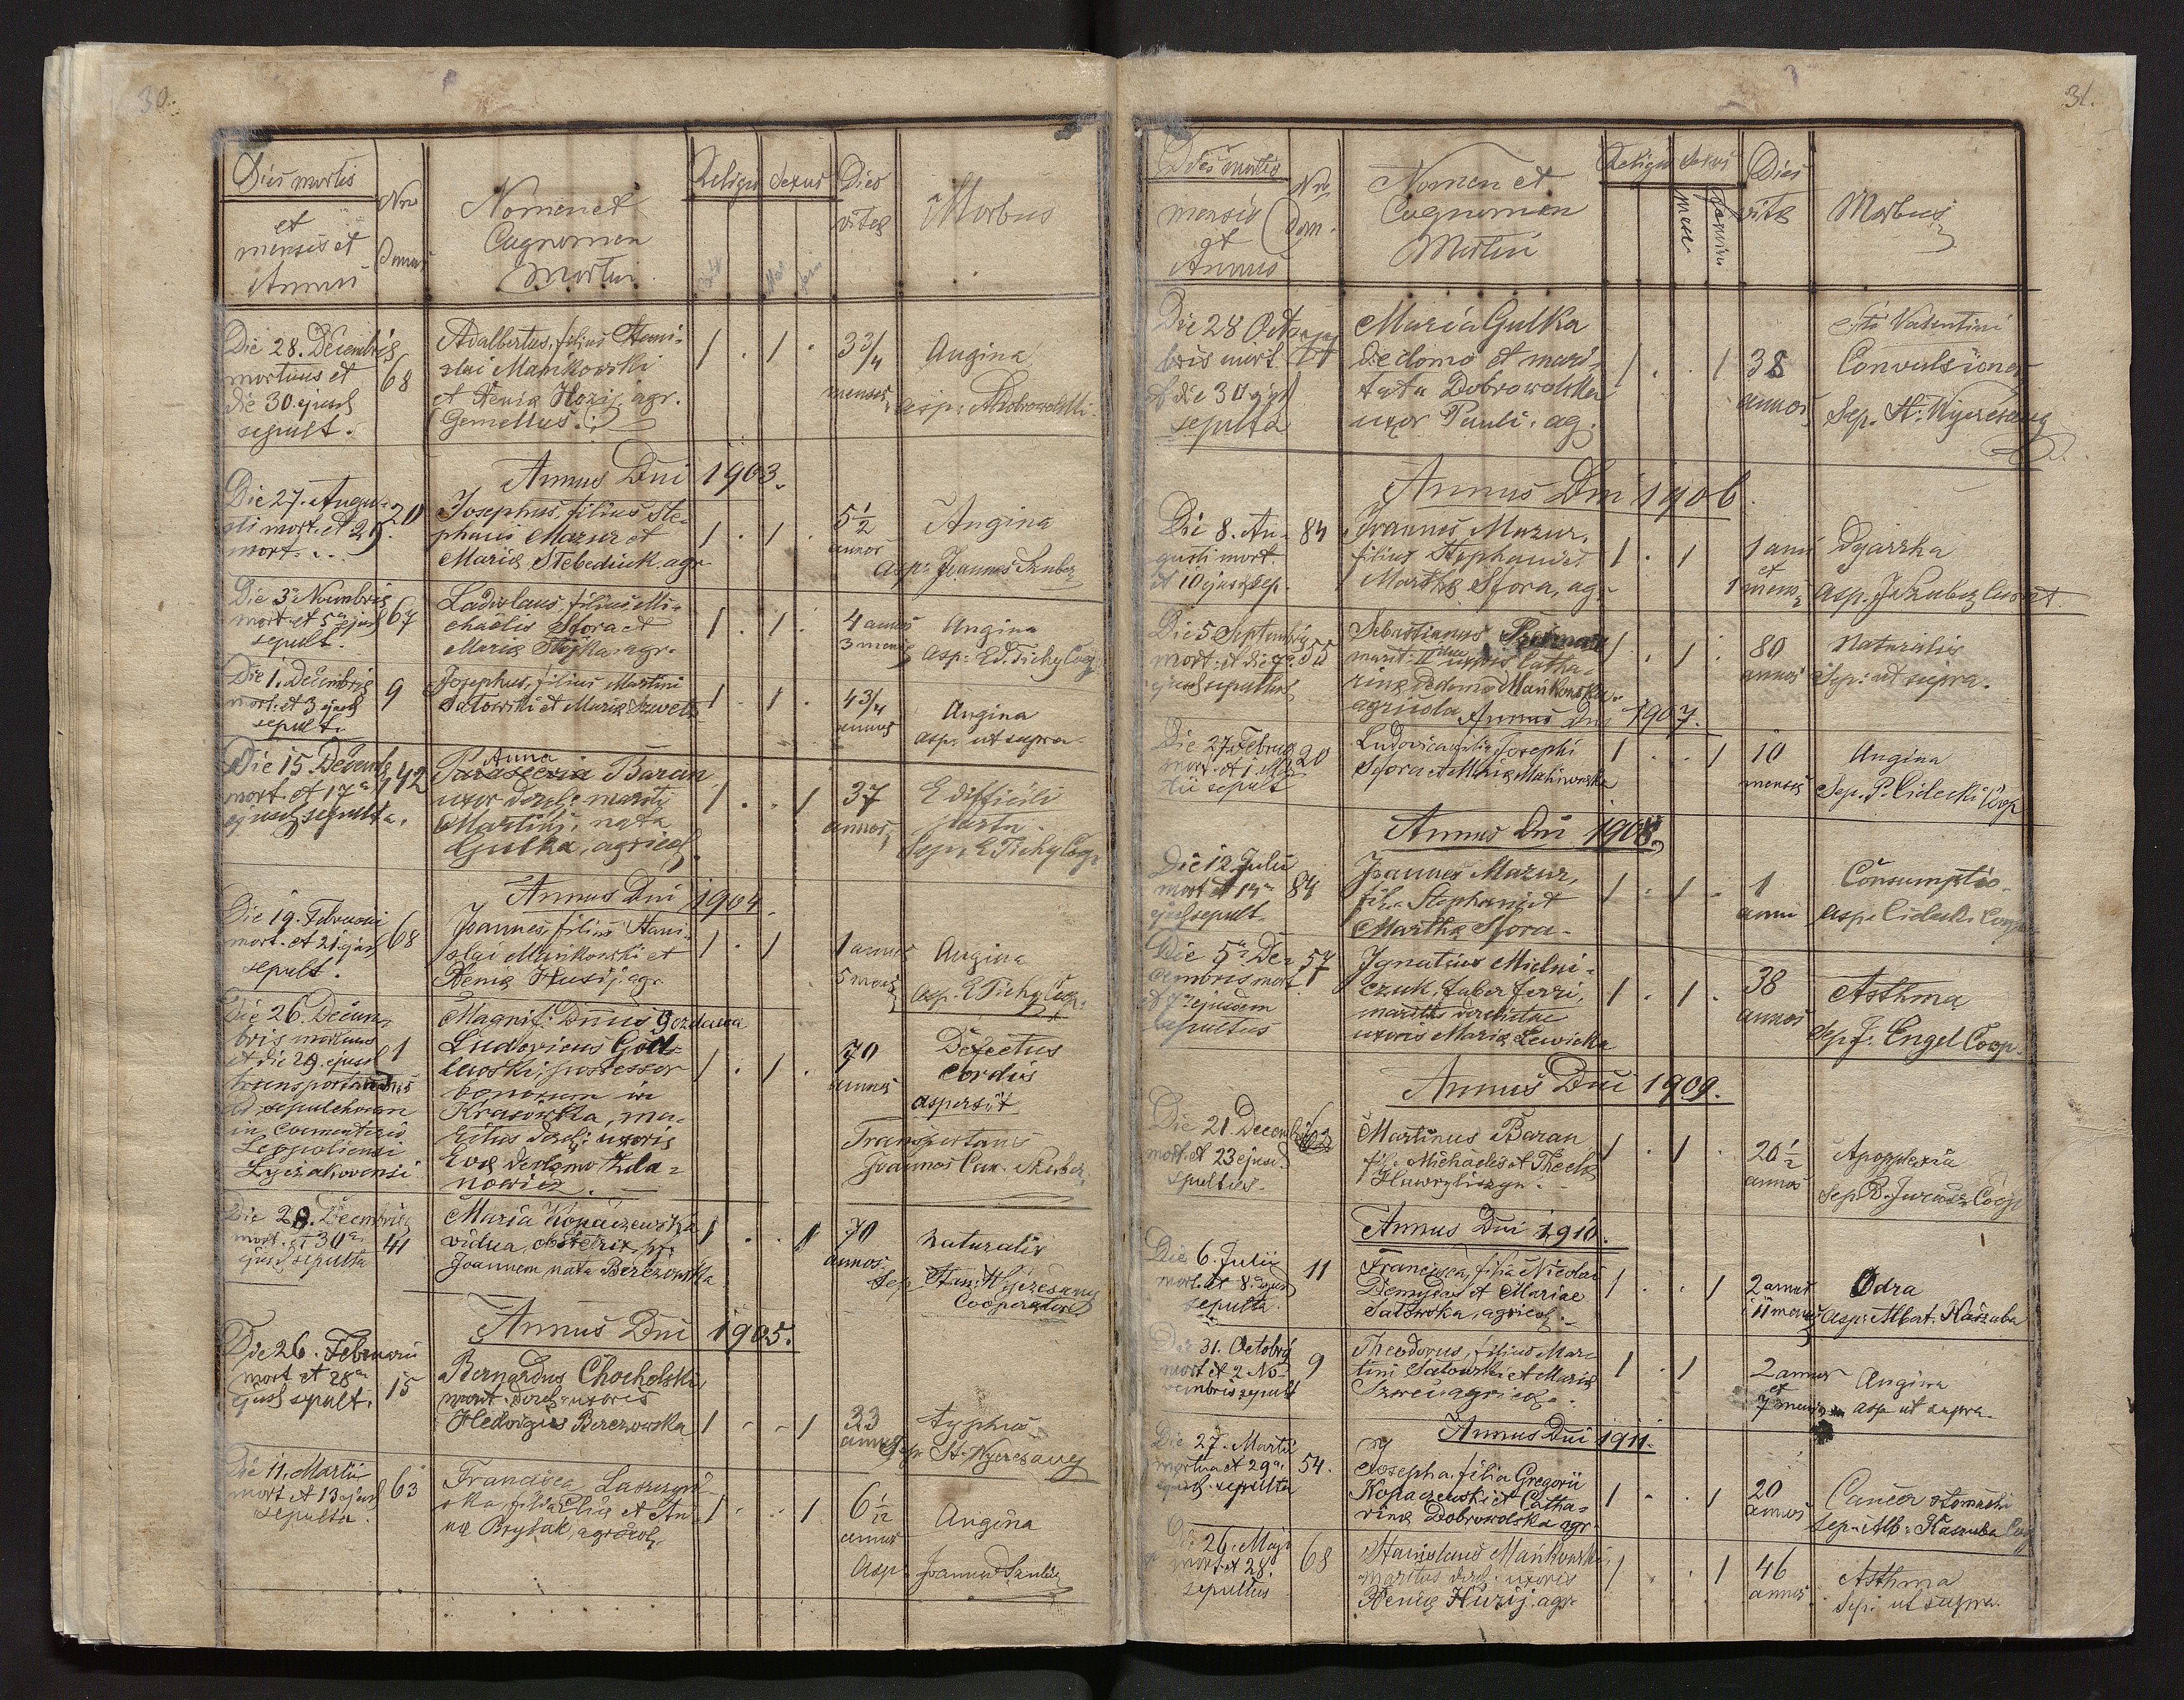 30.
Dies mortis
et
mensis et
Annus
Nro
Domus
Nomen et
Cognomen
Mortui
Religio
Sexus
Dies
vitae
Morbus
Die 28. Decembris
mortuus et
die 30 ejusd
sepult.
68
Adalbertus, filius Stani-
slai Mańkowski
et Xenia Huzij, agr.
Gemellus.
1 . 1 .
3 3/4
menses
Angina
asp:
Annus Dni 1903.
Die 27. Augu-
sti mort. et 29.
mort.
20
Josephus, filius Ste-
phani Mazur et
Maria Stebediuk agr
1 . 1 .
5 1/2
annos
Angina
Asp: Joannes Szuber
Die 3a Novembris
mort. et 5a ejusd
sepult.
67
Ladislaus, filius Mi-
chaëlis Sfora et
Maria agr.
1 . 1 .
4 annos
3 mens
Angina
asp: Ed. Tichy Coop
Die 1. Decembris
mort. et 3 ejusd
sepult.
9
Josephus, filius Martini
Satowski et Maria Szweta
1 . 1 .
4 3/4
annos
Angina
asp. ut supra.
Die 15. Decemb
mort. et 17a
ejusd sepulta.
42
Anna
Parascevia Baran
uxor derel: mariti
Martini, nata
Gulka, agricol
1 . . 1
37
annos
E difficili
partu.
Sep. E. Tichy Coop
Annus Dni 1904.
Die 19. Februarii
mort. et 21 ejusd
sepult.
68
Joannes, filius Stani-
slai Mańkowski et
Xenia Husij agr
1 . 1
1 annus
5 mens
Angina
Asp. E Tichy Coop.
Die 26. Decem-
bris mortuus
et die 29. ejusd
ad sepulchrum
in coementerio
Leopoliensi
Lyczakoviensi
1
Magnif: Dnus Gozdawa
Ludovicus God-
lewski, possessor
bonorum in
Krasówka, ma-
ritus derel: uxoris
Eva de domo Zda-
nowicz.
1 . 1 .
70
annos
Defectus
Cordis
aspersit
Joannes Can. Szuber
Die 28. Decembris
mort. et 30a
ejusd sepulta
41
Maria Kopaczewska
vidua, obstetrix, p.
Joannem, nata Berezowska
1 . . 1
70
annos
naturalis
Sep. Stan. Wyrzesany
Cooperator
Annus Dni 1905.
Die 26. Februarii
mort et 28a
ejusd sepult.
15
Bernardus Chocholski,
marit. derel. uxoris
Hedvigis Berezowska
1 - - 1
33
annos
typhus
Sep. St. Wyrzesany
Die 11. Martii
mort et 13 ejusd
sepulta
63
Francisca
ska, filia Eliae et An-
na Brylak, agricol.
1 . . 1
6 1/12
annos
Angina
Asp. Joannes Szuber
31.
Dies mortis
mensis
et
Annus
Nro
Dom.
Nomen et
Cognomen
Mortui
Religio
Sexus
masc
feminin
Dies
vitae
Morbus
Die 28 Octo-
bris mort.
et die 30 ejusd
sepulta
Maria Gulka
de domo et mari-
tata Dobrowolska
uxor Pauli, ag.
1 . . 1
38
annos
Sti Valentini
Convulsiones
Sep. St. Wyrzesany
Annus Dni 1906.
Die 8. Au-
gusti mort.
et 10 ejusd sep.
84
Joannes Mazur,
filius Stephani et
Martha Sfora, agr
1 . 1
1 anni
et
1 mens
Dyarrha
asp. J Szuber Curat.
Die 5. Septembris
mort. et die 7a
ejusd sepultus
55
Sebastianus
marit. II uxoris Catha-
rina de domo Mańkowska
agricola
1 . 1 .
80
annos
Naturalis
Sep: ut supra.
Annus Dni 1907.
Die 27. Februa
mort. et 1. Mar-
tii sepult
20
Ludovica filia Josephi
Sfora et Maria Malinowska
1 . . 1
10
menses
Angina
Sep. P. Cidecki Coop
Annus Dni 1908.
Die 12. Julii
mort. et 14a
ejusd sepult.
84
Joannes Mazur,
fil. Stephani et
Martha Sfora.
1 . 1 .
1
anni
Consumptio
Asp. Cidecki Coop
Die 5a De-
cembris mort
et 7a ejusdem
sepultus
57
Ignatius Mielni-
czuk, faber ferri,
maritus derelictae
uxoris Maria Lewicka
1 . 1 .
38
annos
Asthma
Sep. J. Engel Coop.
Annus Dni 1909.
Die 21. Decembris
mort. et 23 ejusd.
spultus
Martinus Baran
fil. Michaelis et Thecla
Hawryliszyn.
1 . 1 .
20 1/2
annos
Apopplexia
Sep. D. Jurasz Coop
Annus Dni 1910.
Die 6. Julii
mort. et 8 ejusd
sepulta.
11
Francisca, filia Nicolai
Demydas et Mariae
Satowska, agricol.
1 . . 1
2 annos
i 11 menses
Odra
asp: Albert. Kaszuba
Die 31. Octobris
mort et 2 No-
vembris sepult
9
Theodorus, filius Mar-
tini Satowski et Maria
Szweć agricol.
1 . 1
2 annos
et
7 menses
Angina
asp ut supra.
Annus Dni 1911.
Die 27. Martii
mortua et 29a.
ejusd. sepulta
54.
Josepha, filia Gregorii
Kopaczewski et Catha-
rina Dobrowolska agr.
1 . . 1
20
annos
Cancer stomachi
Sep. Alb. Kaszuba Coop
Die 26. Maji
mort. et 28.
sepultus
68
Stanislaus Mańkowski,
maritus derel. uxoris
Xenia Huzij. agr.
1 . . 1
46
annos
Asthma
Sep: ut supra.